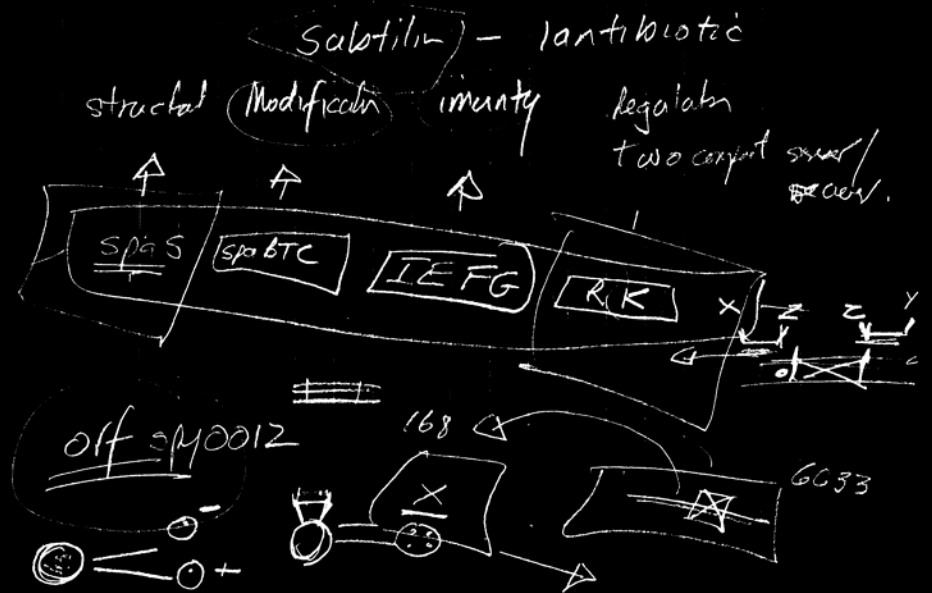 Subtilin - lantibiotic
structal Modificatn imunty Regulatn
two compnt
spaS spaBTC IEFG RK X Z Z Y
orf spy0012 168
X 6633